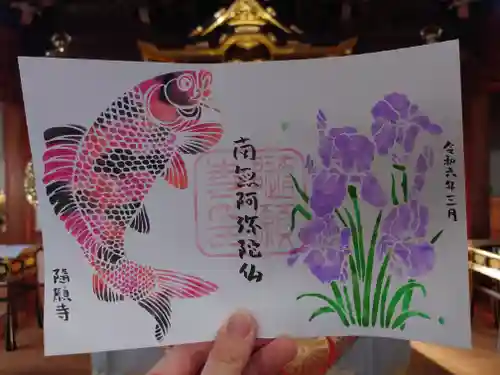 令和六年三月
南無阿弥陀仏
隨願寺